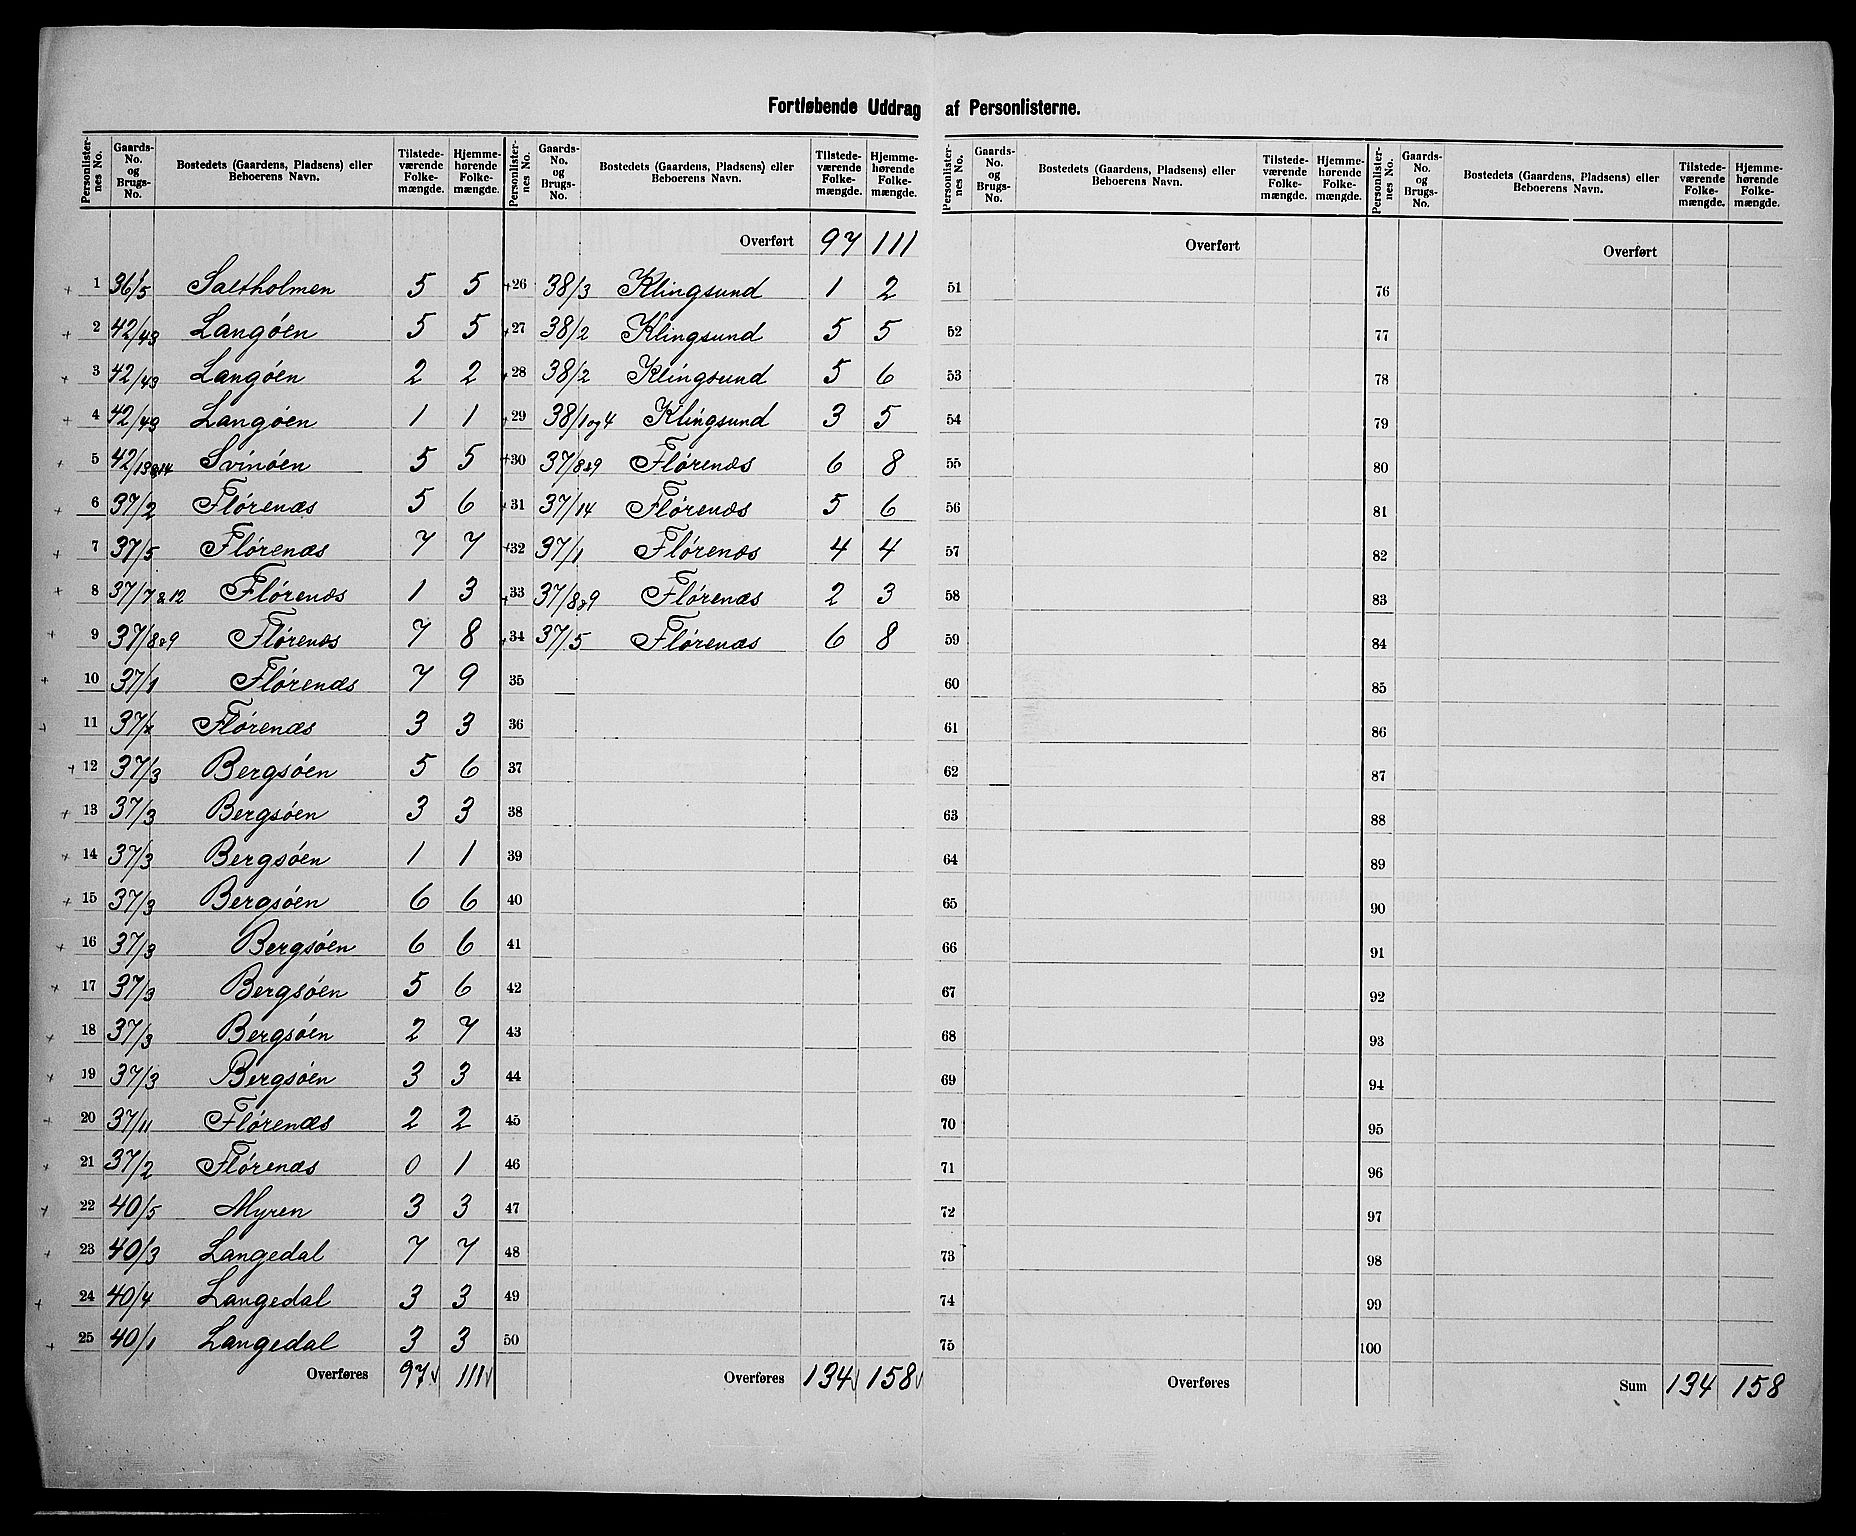 Fortløbende Uddrag af Personlisterne.
Personlister-nes No. | Gaards-No. og Brugs-No. | Bostedets (Gaardens, Pladsens) eller Beboerens Navn. | Tilstede-værende Folke-mængde. | Hjemme-hørende Folke-mængde.
Personlister-nes No. | Gaards-No. og Brugs-No. | Bostedets (Gaardens, Pladsens) eller Beboerens Navn. | Tilstede-værende Folke-mængde. | Hjemme-hørende Folke-mængde.
Personlister-nes No. | Gaards-No. og Brugs-No. | Bostedets (Gaardens, Pladsens) eller Beboerens Navn. | Tilstede-værende Folke-mængde. | Hjemme-hørende Folke-mængde.
Personlister-nes No. | Gaards-No. og Brugs-No. | Bostedets (Gaardens, Pladsens) eller Beboerens Navn. | Tilstede-værende Folke-mængde. | Hjemme-hørende Folke-mængde.
1 36/5 Saltholmen 5 5
2 42/43 Langöen 5 5
3 42/43 Langöen 2 2
4 42/43 Langöen 1 1
5 42/13&14 Svinöen 5 5
6 37/2 Flörenæs 5 6
7 37/5 Flörenæs 7 7
8 37/7&12 Flörenæs 1 3
9 37/8&9 Flörenæs 7 8
10 37/1 Flörenæs 7 9
11 37/ Flörenæs 3 3
12 37/3 Bergsöen 5 6
13 37/3 Bergsöen 3 3
14 37/3 Bergsöen 1 1
15 37/3 Bergsöen 6 6
16 37/3 Bergsöen 6 6
17 37/3 Bergsöen 5 6
18 37/3 Bergsöen 2 7
19 37/3 Bergsöen 3 3
20 37/11 Flörenæs 2 2
21 37/2 Flörenæs 0 1
22 40/5 Myren 3 3
23 40/3 Langedal 7 7
24 40/4 Langedal 3 3
25 40/1 Langedal 3 3
Overføres 97 111
Overført 97 111
26 38/3 Klingsund 1 2
27 38/2 Klingsund 5 5
28 38/2 Klingsund 5 6
29 38/1og4 Klingsund 3 5
30 37/8&9 Flörenæs 6 8
31 37/14 Flörenæs 5 6
32 37/1 Flörenæs 4 4
33 37/8&9 Flörenæs 2 3
34 37/5 Flörenæs 6 8
35
36
37
38
39
40
41
42
43
44
45
46
47
48
49
50
Overføres 134 158
Overført
51
52
53
54
55
56
57
58
59
60
61
62
63
64
65
66
67
68
69
70
71
72
73
74
75
Overføres
Overført
76
77
78
79
80
81
82
83
84
85
86
87
88
89
90
91
92
93
94
95
96
97
98
99
100
Sum 134 158